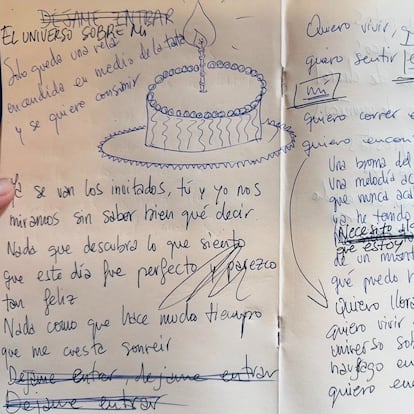 DEJAME ENTRAR
EL UNIVERSO SOBRE MI
Solo queda una vela
encendida en medio de la tarta
y se quiere consumir
Ya se van los invitados, tú y yo nos
miramos sin saber bien qué decir.
Nada que descubra lo que siento
que este día fue perfecto y parezco
tan feliz
Nada como que hace mucho tiempo
que me cuesta sonreir
Dejame entrar dejame entrar
Dejame entrar
Quiero vivir,
quiero sentir
mi
quiero correr
quiero
Una broma del
Una melodía
que nunca
ya he tenido
Necesito
que estoy
de un
qué puedo
Quiero
quiero vivir
universo
naufrago en
quiero